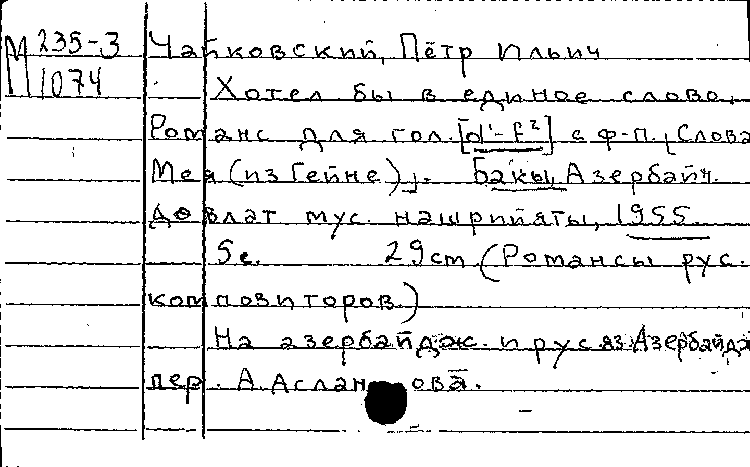 М 235-3 Чайковский, Пётр Ильич
1074 Хотел бы в единое слово.
Романс для гол. [d¹-f²] с ф-п. (Слова
Мея (из Гейне)). Бакы, Азербайч.
довлат мус. нашрийяты, 1955.
5с. 29cm (Романсы рус.
композиторов.)
На азербайдж. и рус яз. Азербайдж
пер. А. Аслан ова.